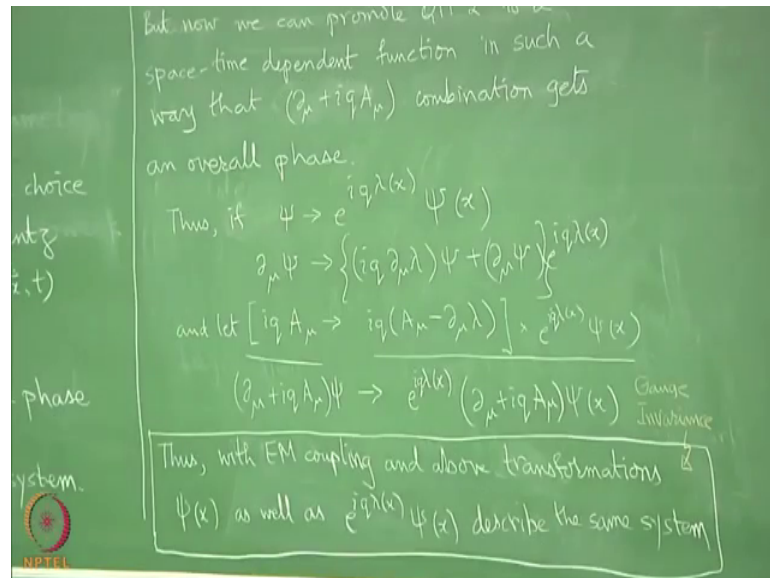 But now we can promote
space-time dependent function in such a
way that (∂_μ + iqA_μ) combination gets
an overall phase.
choice
Thus, if Ψ → e^{iqλ(x)} Ψ(x)
∂_μ Ψ → {(iq ∂_μ λ)Ψ + (∂_μ Ψ)} e^{iqλ(x)}
, t)
and let [iq A_μ → iq(A_μ - ∂_μ λ)] × e^{iqλ(x)} Ψ(x)
phase
(∂_μ + iq A_μ)Ψ → e^{iqλ(x)} (∂_μ + iq A_μ)Ψ(x)
Gauge
Invariance
Thus, with EM coupling and above transformations
ystem.
Ψ(x) as well as e^{iqλ(x)} Ψ(x) describe the same system
NPTEL